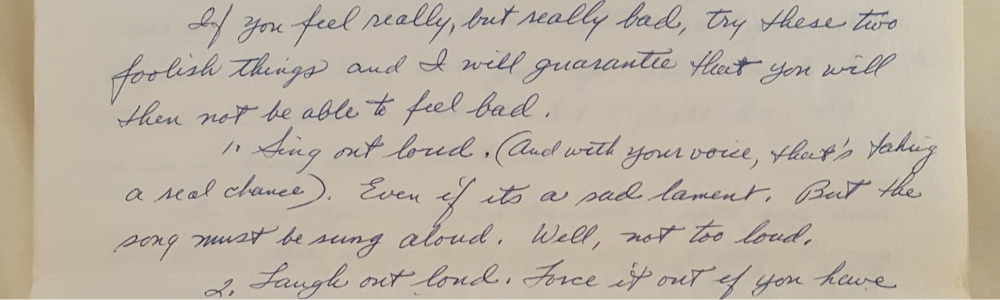 If you feel really, but really bad, try these two
foolish things and I will guarantee that you will
then not be able to feel bad.
1. Sing out loud. (And with your voice, that's taking
a real chance). Even if its a sad lament. But the
song must be sung aloud. Well, not too loud.
2. Laugh out loud. Force it out if you have